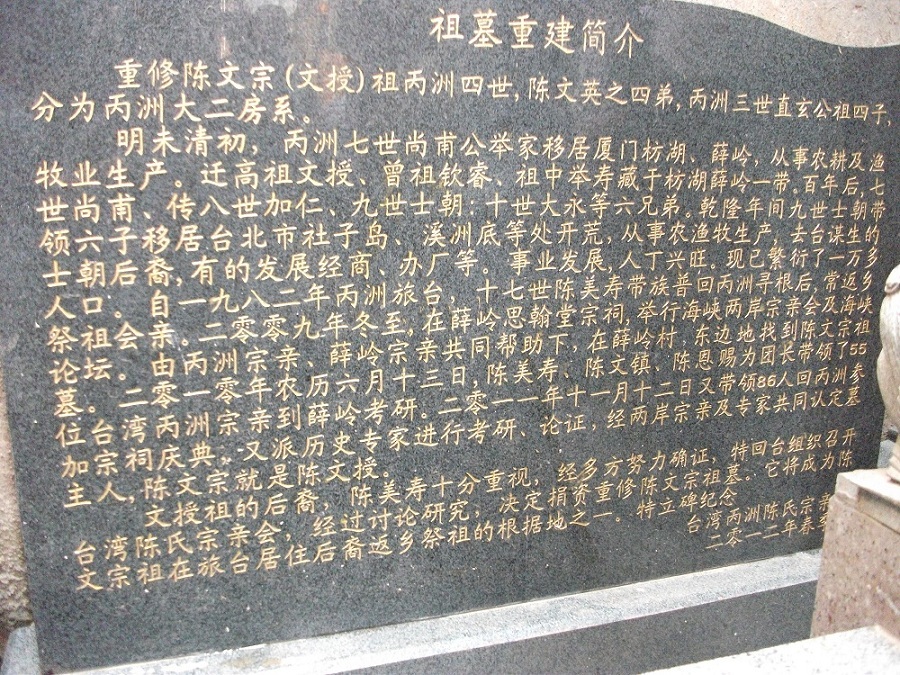 祖墓重建简介
重修陈文宗(文授)祖丙洲四世,陈文英之四弟,丙洲三世直玄公祖四子,
分为丙洲大二房系。
明末清初，丙洲七世尚甫公举家移居厦门枋湖、薛岭，从事农耕及渔
牧业生产。迁高祖文授、曾祖钦睿、祖中举寿藏于枋湖薛岭一带。百年后,七
世尚甫、传八世加仁、九世士朝.十世大永等六兄弟。乾隆年间九世士朝带
领六子移居台北市社子岛、溪洲底等处开荒,从事农渔牧生产,去台谋生的
士朝后裔,有的发展经商、办厂等。事业发展,人丁兴旺。现已繁衍了一万多
人口。自一九八二年丙洲旅台,十七世陈美寿带族普回丙洲寻根后,常返乡
祭祖会亲。二零零九年冬至,在薛岭思翰堂宗祠,举行海峡两岸宗亲会及海峡
论坛。由丙洲宗亲、薛岭宗亲共同帮助下,在薛岭村、东边地找到陈文宗祖
墓。二零一零年农历六月十三日,陈美寿、陈文镇、陈恩赐为团长带领了55
位台湾丙洲宗亲到薛岭考研。二零一一年十一月十二日又带领86人回丙洲参
加宗祠庆典。又派历史专家进行考研、论证,经两岸宗亲及专家共同认定墓
主人,陈文宗就是陈文授。
文授祖的后裔,陈美寿十分重视,经多方努力确证,特回台组织召开
台湾陈氏宗亲会,经过讨论研究,决定捐资重修陈文宗祖墓。它将成为陈
文宗祖在旅台居住后裔返乡祭祖的根据地之一。特立碑纪念
台湾丙洲陈氏宗亲
二零一二年春